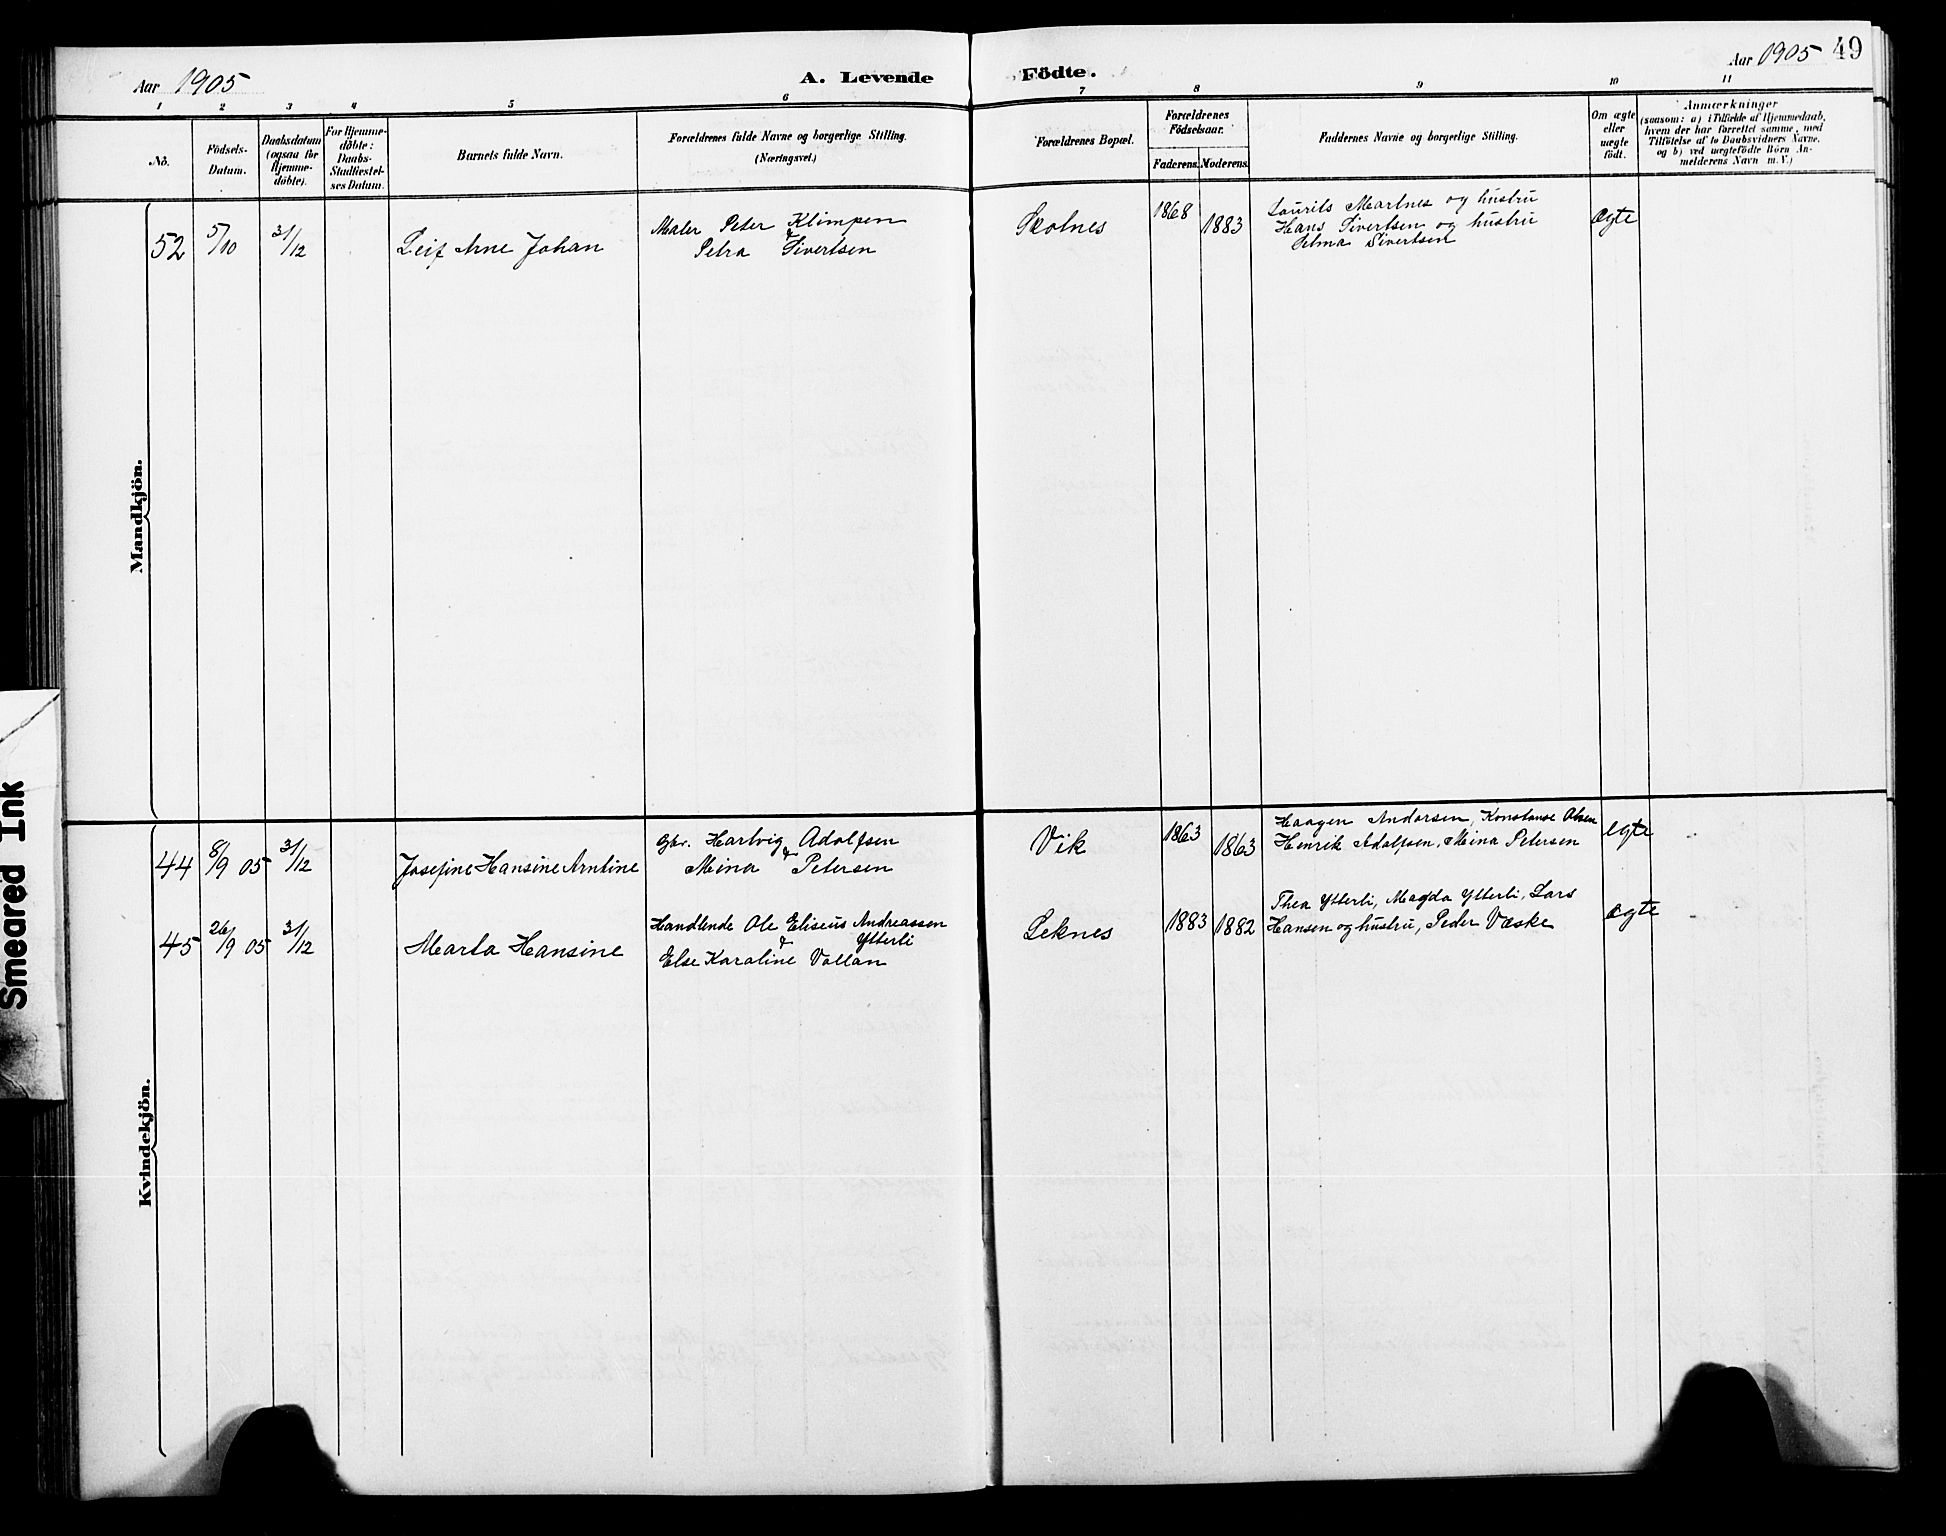 Aar 1905
A. Levende Födte.
Aar 1905 49
1 2 3 4 5 6 7 8 9 10 11
No.
Födsels-
Datum.
Daabsdatum
(ogsaa for
Hjemme-
döbte).
For Hjemme-
döbte:
Daabs-
Stadfæstel-
ses Datum.
Barnets fulde Navn.
Forældrenes fulde Navne og borgerlige Stilling.
(Næringsvei.)
Forældrenes Bopæl.
Forældrenes
Födselsaar.
Faderens. Moderens.
Faddernes Navne og borgerlige Stilling.
Om ægte
eller
uægte
födt.
Anmærkninger
(saasom: a) i Tilfælde af Hjemmedaab,
hvem der har forrettet samme, med
Tilföielse af to Daabsvidners Navne,
og b) ved uægtefödte Börn An-
melderens Navn m. V.)
Mandkjön.
52 5/10 31/12 Leif Arne Johan
Maler Peter Klimpen
&
Petra Sivertsen
Skotnes
1868 1883
Laurits Martnes og hustru
Hans Sivertsen og hustru
Selma Sivertsen
Ægte
Kvindekjön.
44 8/9 05 31/12 Josefine Hansine Arntine
Gbr. Hartvig Adolfsen
&
Mina Petersen
Vik
1863 1863
Haagen Andorsen, Konstanse Olsen
Henrik Adolfsen, Mina Petersen
egte
45 26/9 05 31/12 Marta Hansine
Handlende Ole Eliseus Andreassen
& Ytterli
Else Karoline Vollan
Leknes
1883 1882
Thea Ytterli, Magda Ytterli, Lars
Hansen og hustru, Peder Væske
ægte
Smeared Ink